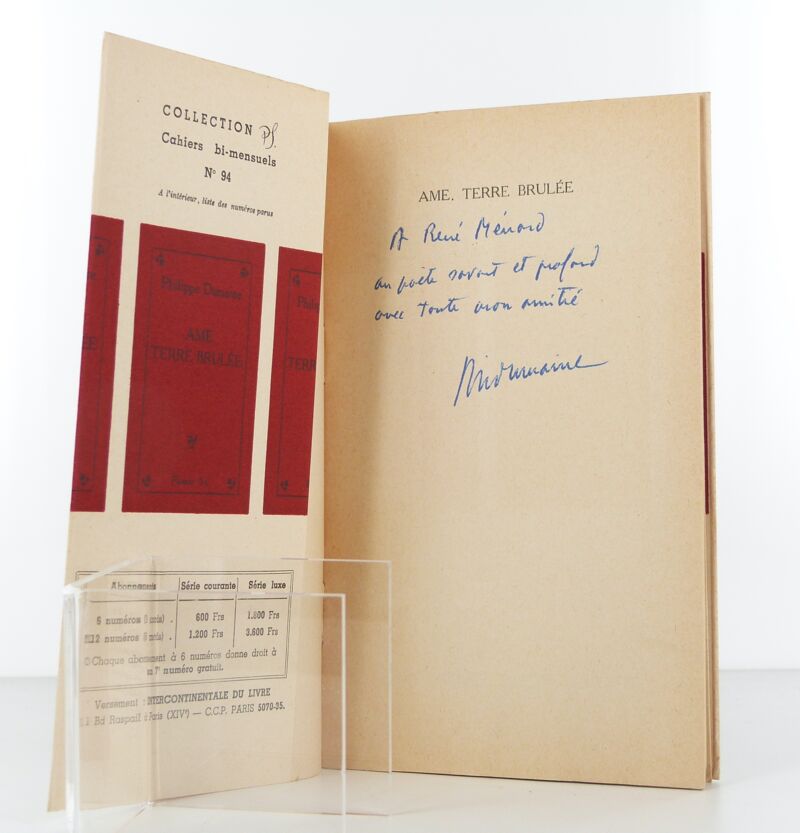 COLLECTION PS.
Cahiers bi-mensuels
N° 94
A l'intérieur, liste des numéros parus
Philippe Dumaine
AME
TERRE BRULÉE
Abonnements Série courante Série luxe
6 numéros (3 mois) . 600 Frs 1.800 Frs
12 numéros (6 mois) . 1.200 Frs 3.600 Frs
Chaque abonnement à 6 numéros donne droit à
un 7e numéro gratuit.
Versement : INTERCONTINENTALE DU LIVRE
Bd Raspail à Paris (XIVe) — C.C.P. PARIS 5070-35.
AME, TERRE BRULÉE
A René Ménard
au poète savant et profond
avec toute mon amitié